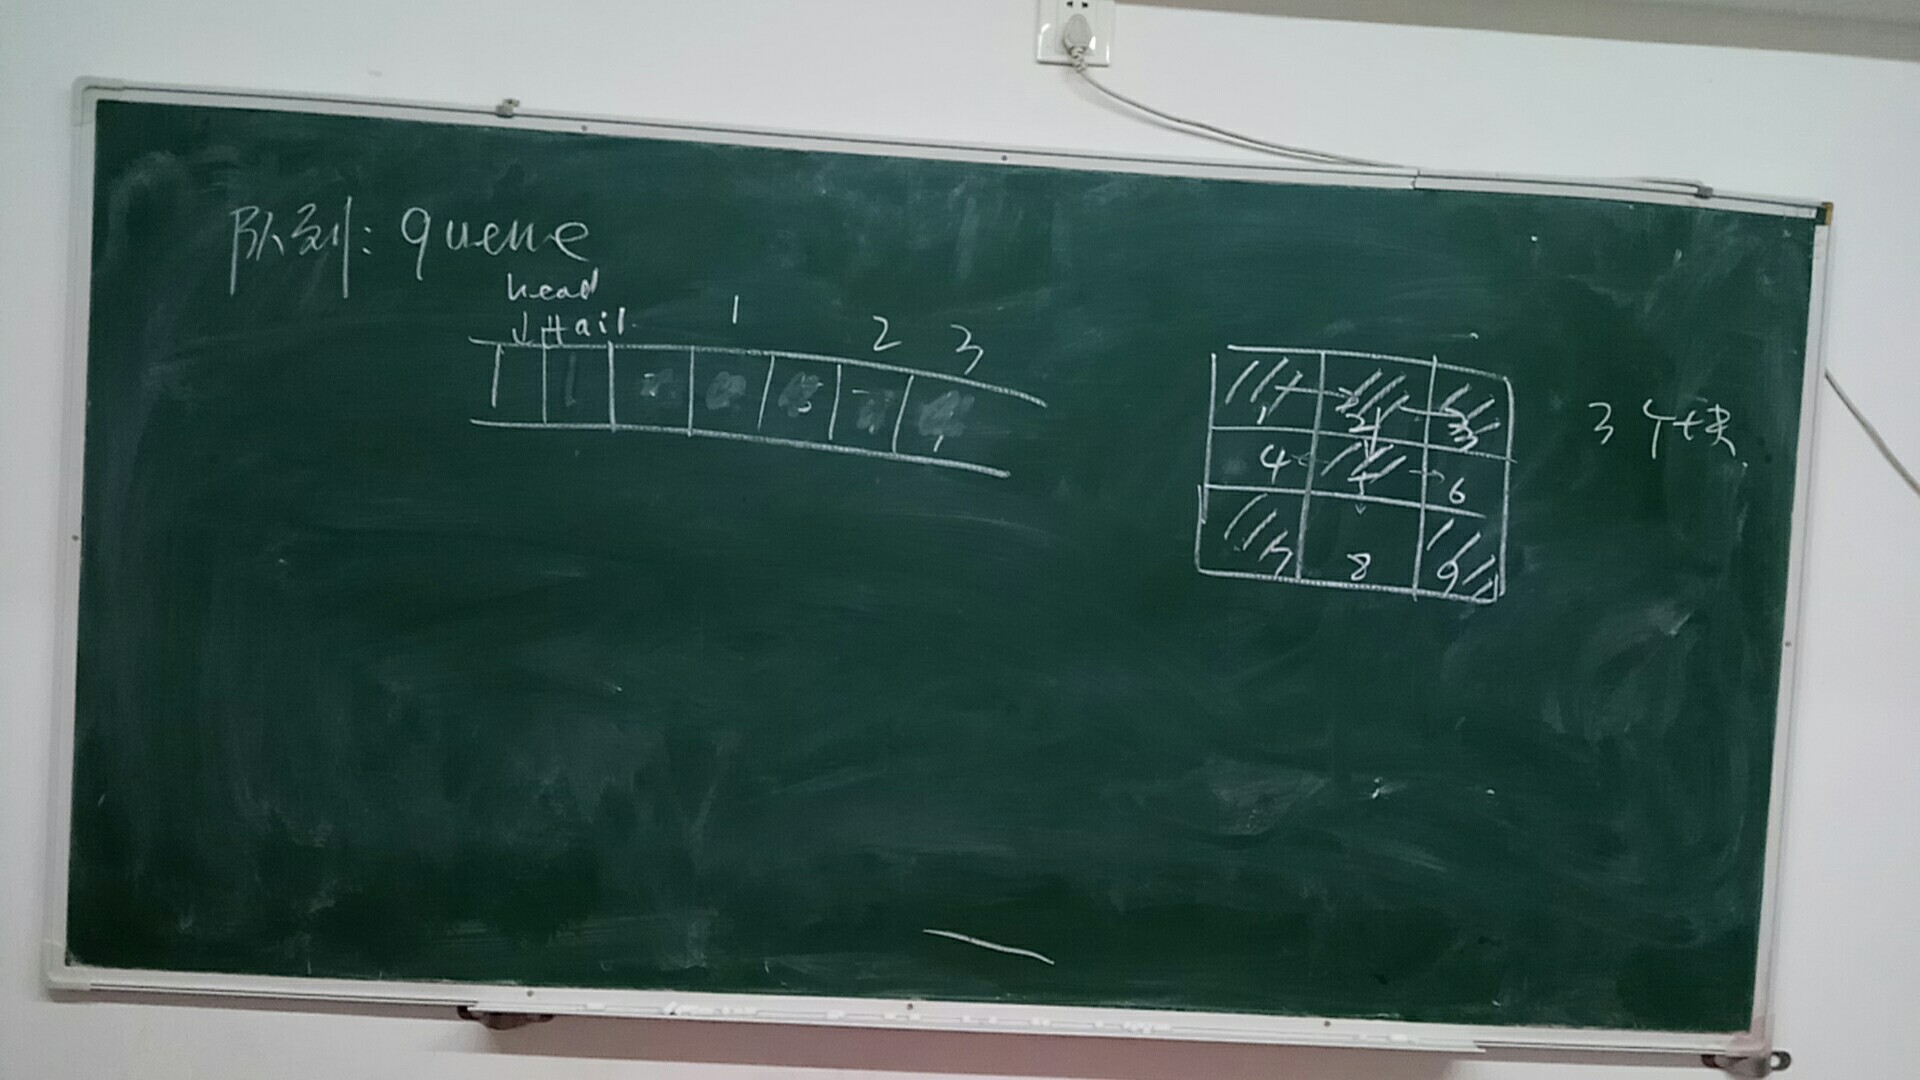 队列: queue
head
↓ tail
1 2 3
1 2 3
4 6
7 8 9
3个块